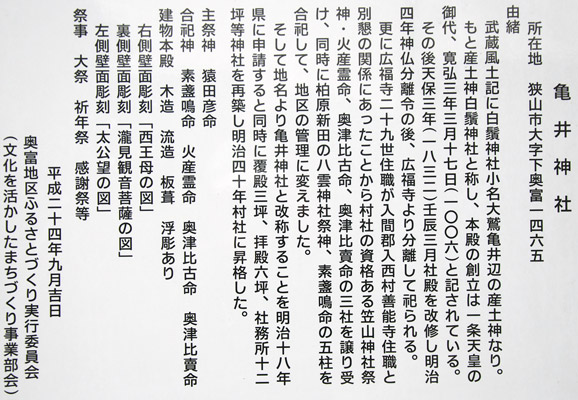 亀井神社
所在地　狭山市大字下奥富一四六五
由緒
武蔵風土記に白鬚神社小名大鷲亀井辺の産土神なり。
もと産土神白鬚神社と称し、本殿の創立は一条天皇の
御代、寛弘三年三月十七日(一〇〇六)と記されている。
その後天保三年(一八三二)壬辰三月社殿を改修し明治
四年神仏分離令の後、広福寺より分離して祀られる。
更に広福寺二十九世住職が入間郡入西村善能寺住職と
別懇の関係にあったことから村社の資格ある笠山神社祭
神・火産霊命、奥津比古命、奥津比賣命の三社を譲り受
け、同時に柏原新田の八雲神社祭神、素盞鳴命の五柱を
合祀して、地区の管理に変えました。
そして地名より亀井神社と改称することを明治十八年
県に申請すると同時に覆殿三坪、拝殿六坪、社務所十二
坪等神社を再築し明治四十年村社に昇格した。
主祭神　猿田彦命
合祀神　素盞鳴命　火産霊命　奥津比古命　奥津比賣命
建物本殿　木造　流造　板葺　浮彫あり
右側壁面彫刻「西王母の図」
裏側壁面彫刻「瀧見観音菩薩の図」
左側壁面彫刻「太公望の図」
祭事　大祭　祈年祭　感謝祭等
平成二十四年九月吉日
奥富地区ふるさとづくり実行委員会
(文化を活かしたまちづくり事業部会)